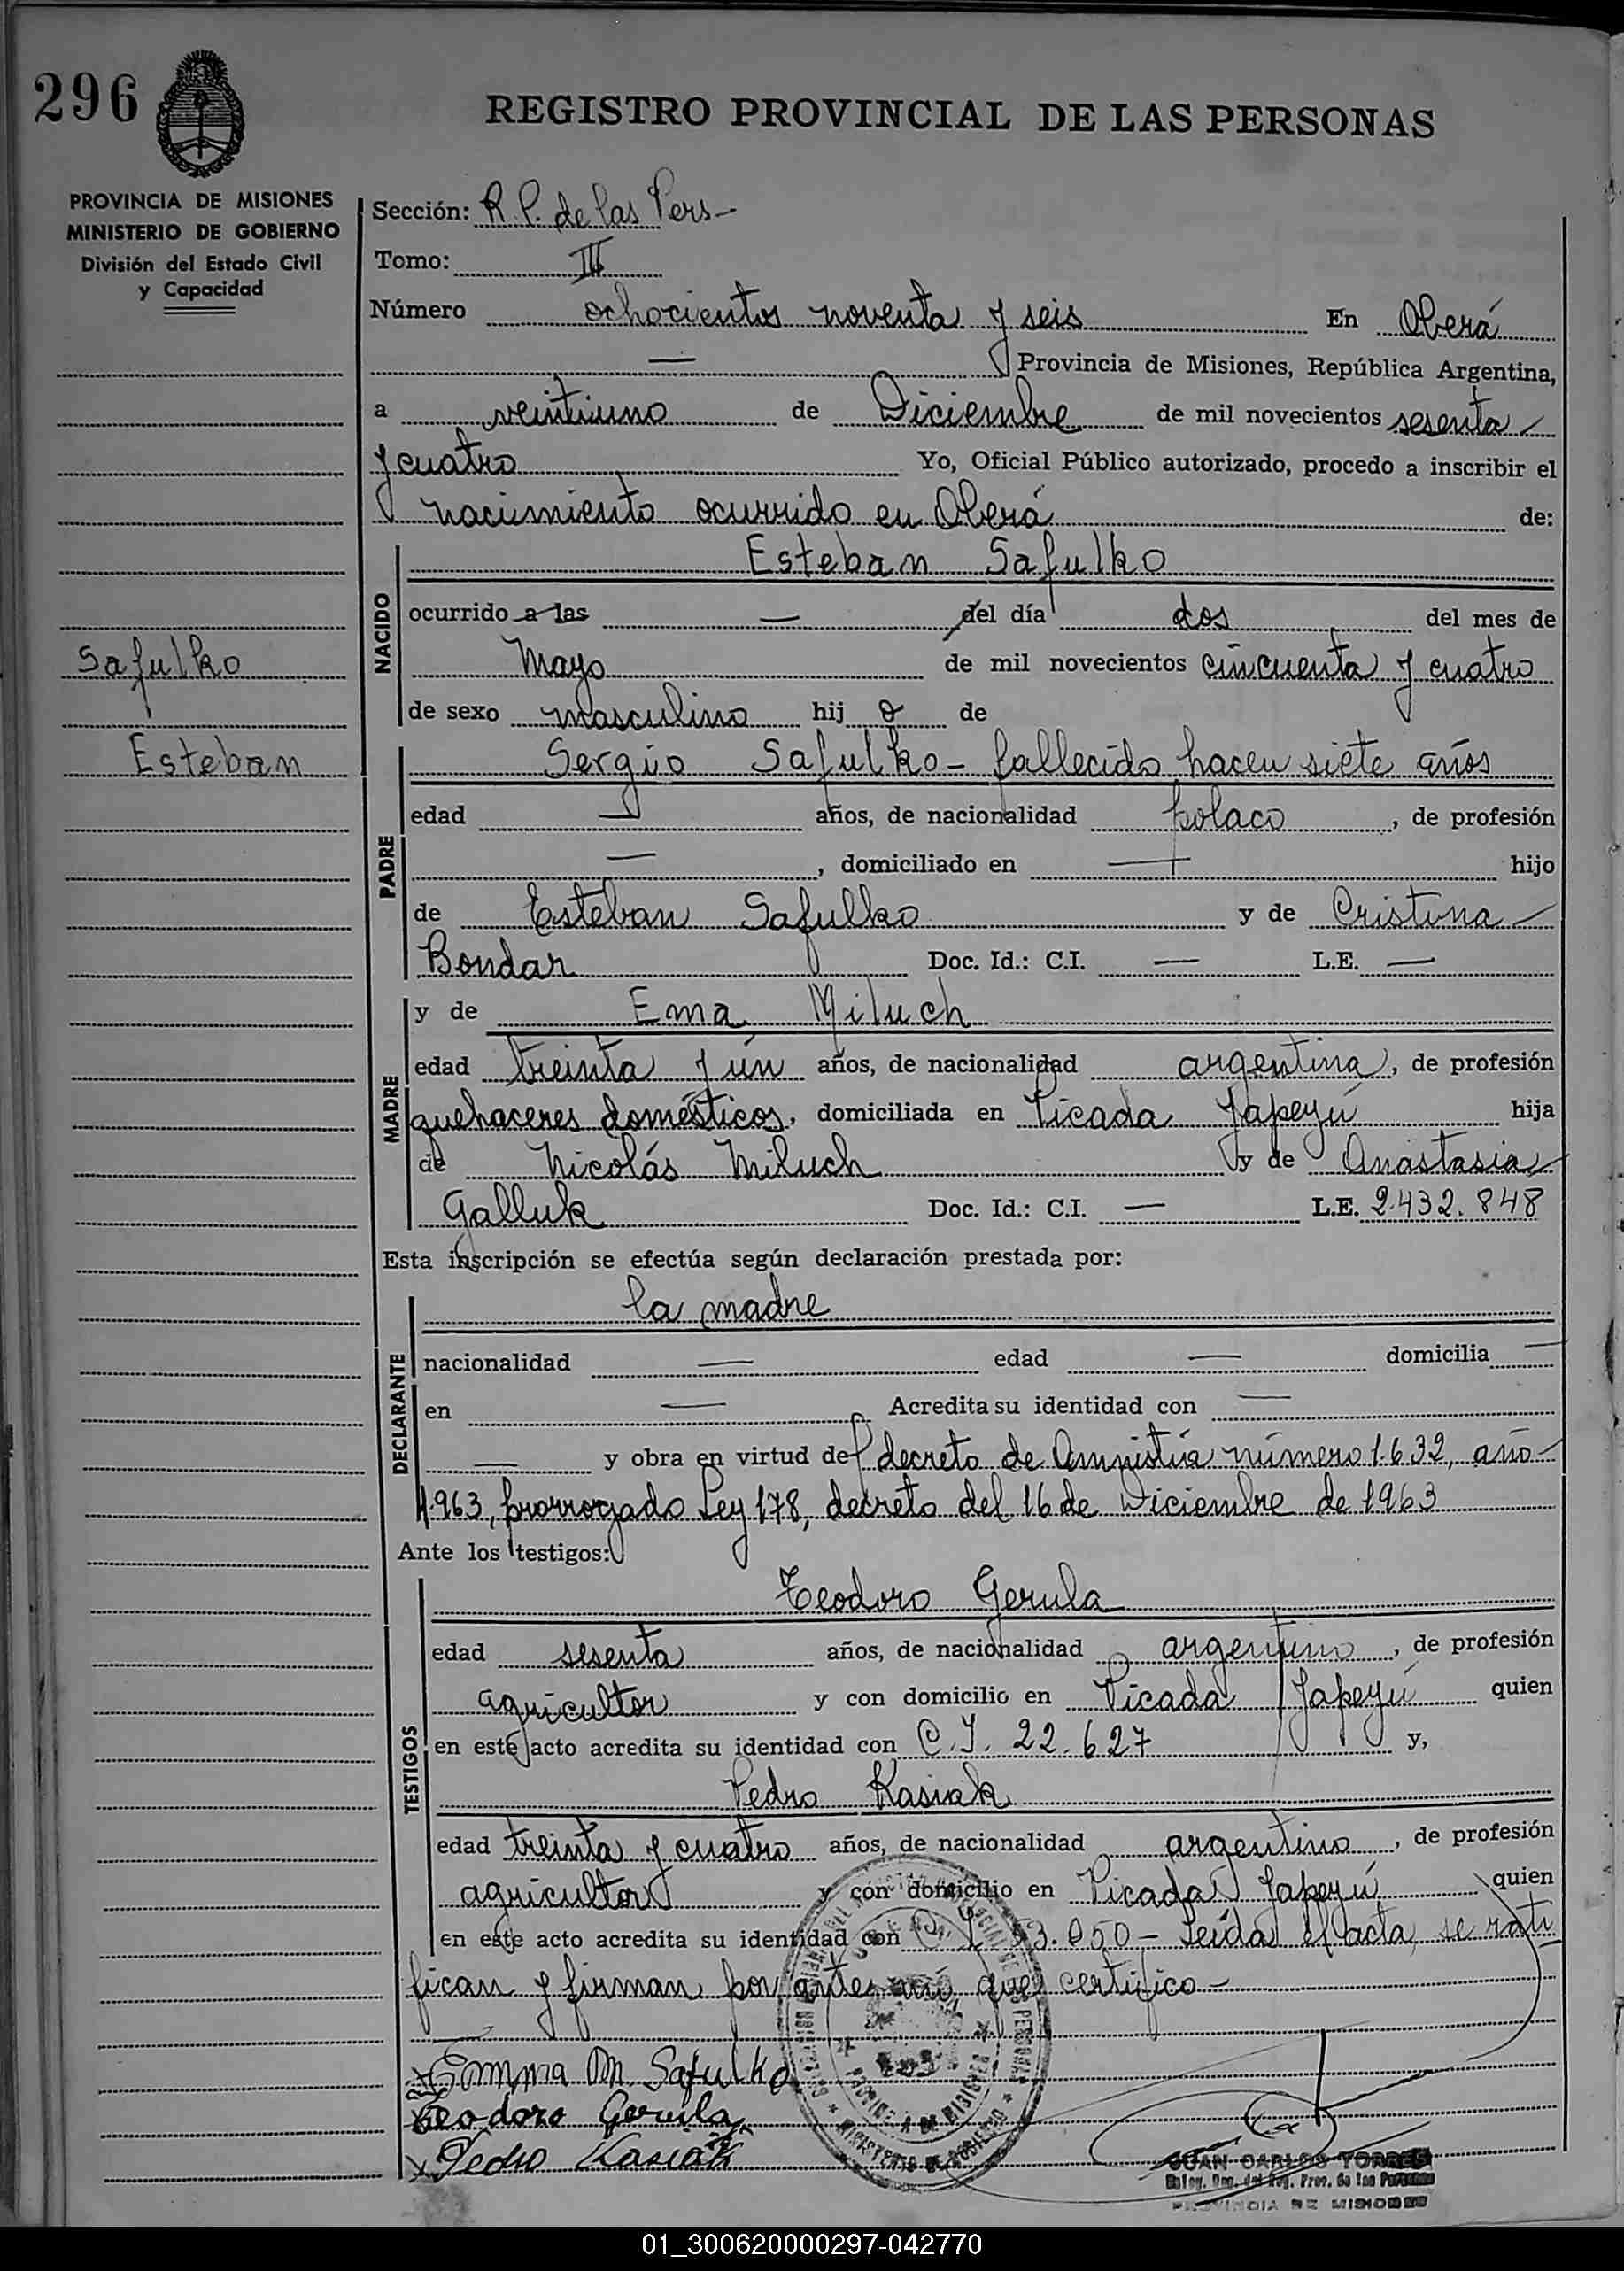 296
REGISTRO PROVINCIAL DE LAS PERSONAS
PROVINCIA DE MISIONES
MINISTERIO DE GOBIERNO
División del Estado Civil
y Capacidad
Sección: R. P. de las Pers-
Tomo: III
Número ochocientos noventa y seis En Oberá
— Provincia de Misiones, República Argentina,
a veintiuno de Diciembre de mil novecientos sesenta
y cuatro Yo, Oficial Público autorizado, procedo a inscribir el
nacimiento ocurrido en Oberá de:
NACIDO
Esteban Safulko
ocurrido a las — del día dos del mes de
Safulko
Mayo de mil novecientos cincuenta y cuatro
de sexo masculino hijo de
Esteban
PADRE
Sergio Safulko - fallecido hacen siete años
edad — años, de nacionalidad polaco, de profesión
—, domiciliado en — hijo
de Esteban Safulko y de Cristina
Bondar Doc. Id.: C.I. — L.E. —
MADRE
y de Ema Miluch
edad treinta y ún años, de nacionalidad argentina, de profesión
quehaceres domésticos, domiciliada en Picada Yapeyú hija
de Nicolás Miluch y de Anastasia
Galluk Doc. Id.: C.I. — L.E. 2.432.848
Esta inscripción se efectúa según declaración prestada por:
DECLARANTE
la madre
nacionalidad — edad — domicilia —
en — Acredita su identidad con —
— y obra en virtud del decreto de Amnistía número 1.632, año
1.963, prorrogado Ley 178, decreto del 16 de Diciembre de 1963
Ante los testigos:
TESTIGOS
Teodoro Gerula
edad sesenta años, de nacionalidad argentino, de profesión
agricultor y con domicilio en Picada Yapeyú quien
en este acto acredita su identidad con C.I. 22.627 y,
Pedro Kasiak
edad treinta y cuatro años, de nacionalidad argentino, de profesión
agricultor y con domicilio en Picada Yapeyú quien
en este acto acredita su identidad con C.I. 53.050 - Leída el acta, se rati
fican y firman por ante mí que certifico -
Emma M. Safulko
Teodoro Gerula
Pedro Kasiak
MINISTERIO DE GOBIERNO
PROVINCIA DE MISIONES
JUAN CARLOS TORRES
Reg. Prov. de las Personas
PROVINCIA DE MISIONES
01_300620000297-042770